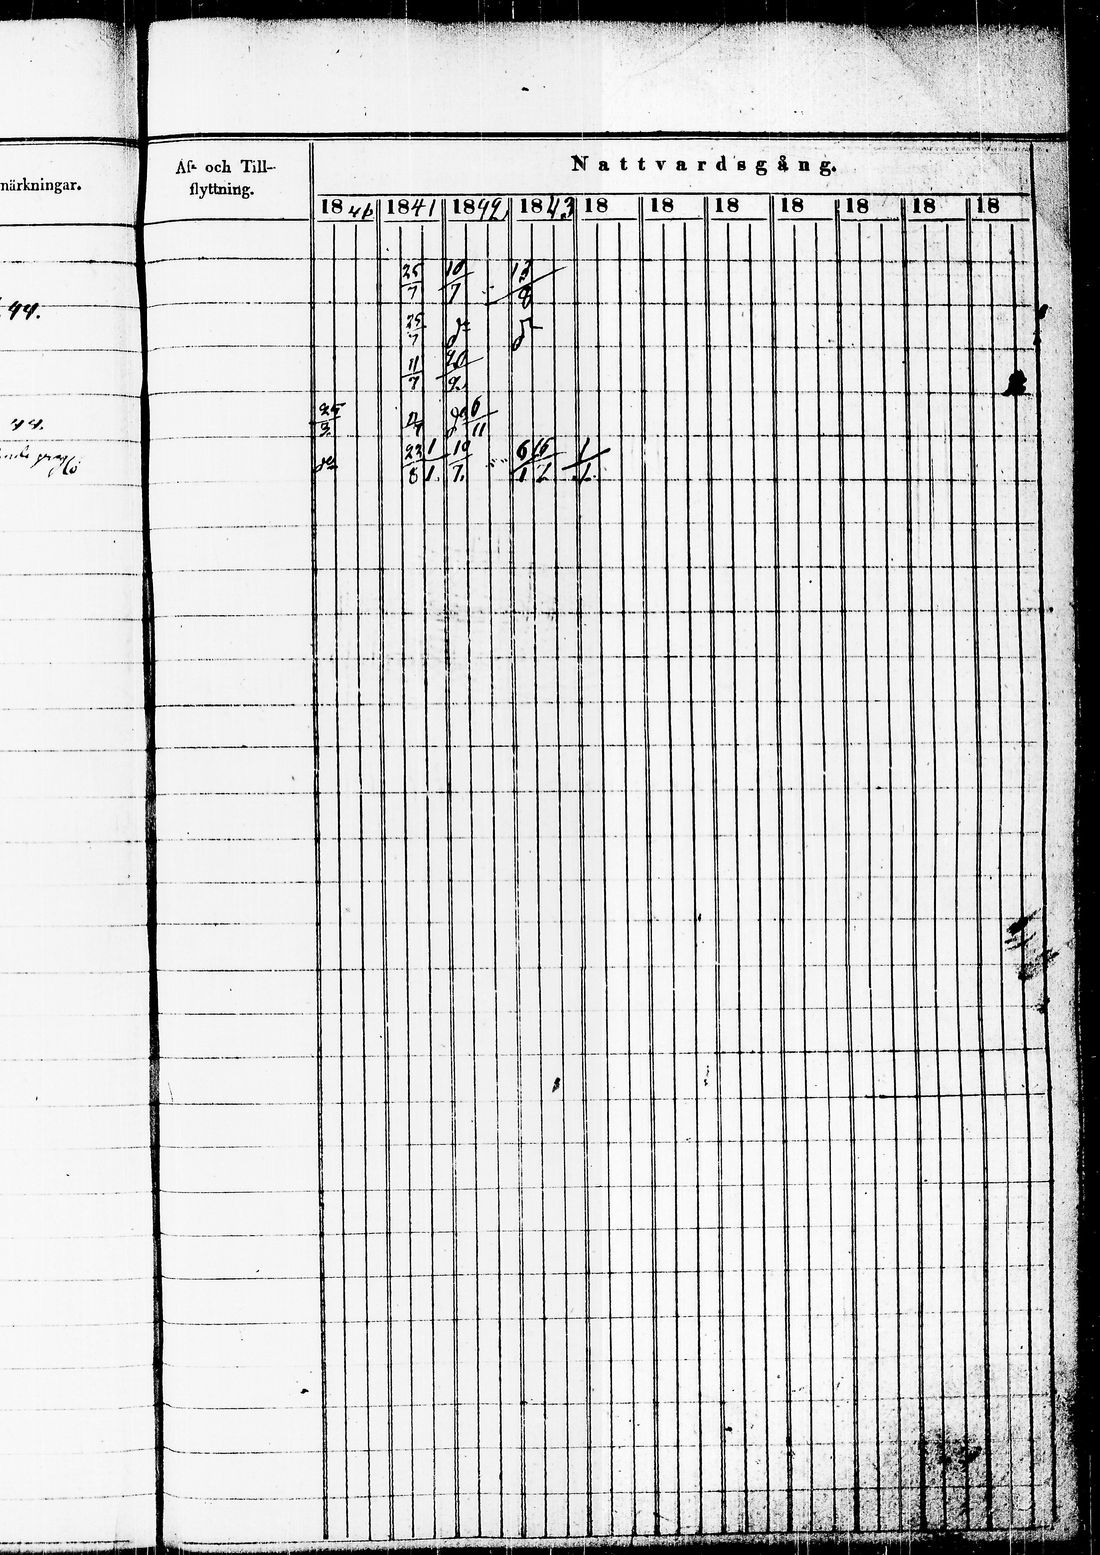 närkningar.
Af- och Till-
flyttning.
Nattvardsgång.
18 1841 1842 1843 18 18 18 18 18 18 18
25/7 10/7 13/8
44.
25/7 do do
11/7
25/3 do 6/11
44.
do 23/8 1/1 10/7 6/1 1/1